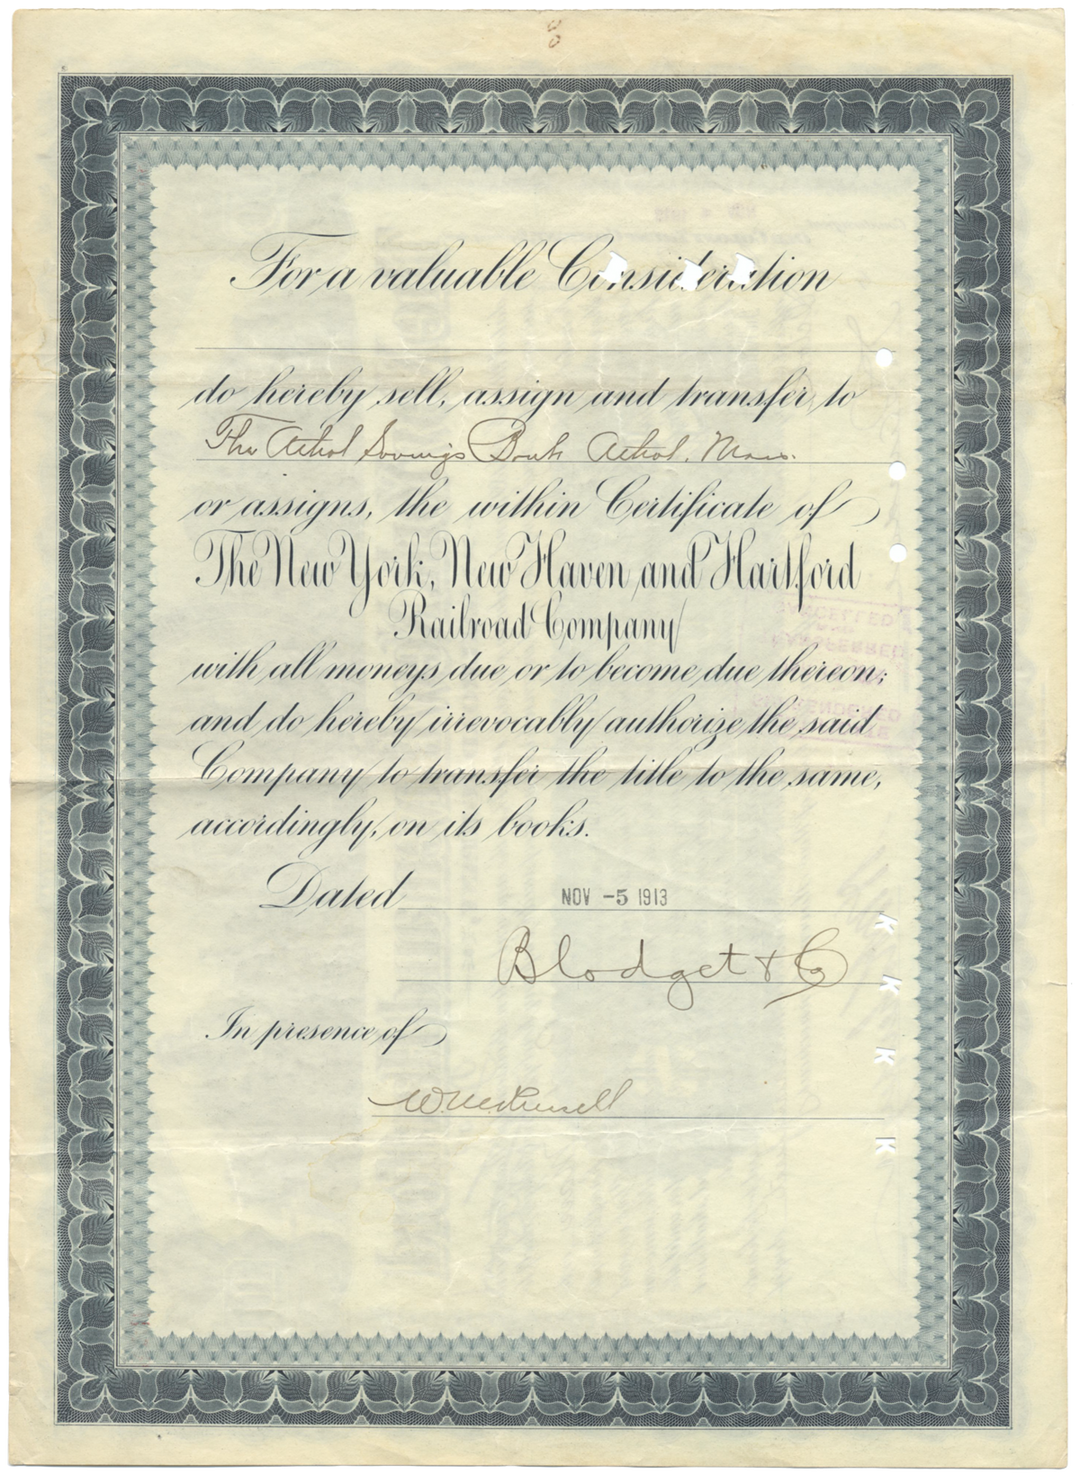 For a valuable Consideration
do hereby sell, assign and transfer to
The Athol Savings Bank Athol, Mass.
or assigns, the within Certificate of
The New York, New Haven and Hartford
Railroad Company
with all moneys due or to become due thereon;
and do hereby irrevocably authorize the said
Company to transfer the title to the same,
accordingly, on its books.
Dated NOV -5 1913
Blodget & Co
In presence of
K
K
K
K